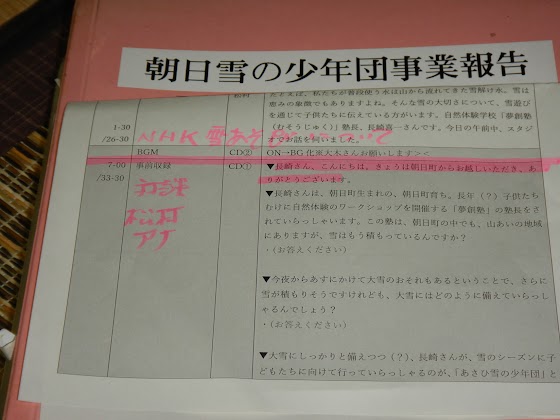 朝日雪の少年団事業報告
たとえば、私たちが普段使う水は山から流れてきた雪解け水。雪は
恵みの象徴でもありますよね。そんな雪の大切さについて、雪遊び
を通じて子供たちに伝えている方がいます。自然体験学校「夢創塾
（むそうじゅく）」塾長、長崎喜一さんです。今日の午前中、スタジ
オでお話を伺いました。
1-30
/26-30
NHK 雪あそび
BGM CD② ON→BG化
7-00 事前収録 CD①
/33-30
▼長崎さん、こんにちは。きょうは朝日町からお越しいただき、あ
りがとうございます。
打合せ
アナ
▼長崎さんは、朝日町生まれの、朝日町育ち。長年（？）子供たち
むけに自然体験のワークショップを開催する「夢創塾」の塾長をさ
れていらっしゃいます。この塾は、朝日町の中でも、山あいの地域
にありますが、雪はもう積もっているんですか？
・（お答えください）
▼今夜からあすにかけて大雪のおそれもあるということで、さらに
雪が積もりそうですけれども、大雪にはどのように備えていらっし
ゃるんでしょう？
・（お答えください）
▼大雪にしっかりと備えつつ（？）、長崎さんが、雪のシーズンに子
どもたちに向けて行っていらっしゃるのが、「あさひ雪の少年団」と